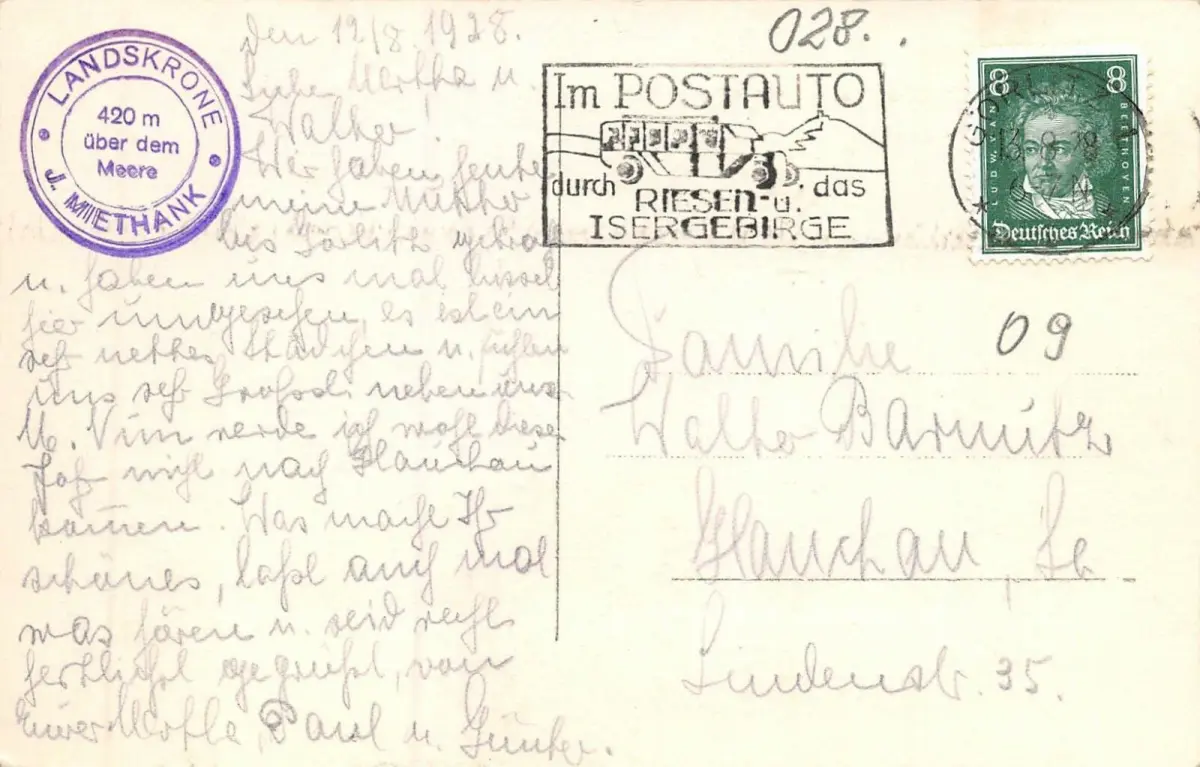 LANDSKRONE
420 m
über dem
Meere
J. MIETHANK
den 12/8. 1928.
Liebe Martha u.
Walter!
Wir haben heute
meine Mutter
aus Görlitz
u. haben uns mal bissel
hier umgesehen, es ist ein
sehr nettes Städchen u. fühlen
uns sehr
Nun werde ich wohl dieses
Jahr nicht nach Glauchau
kommen. Was macht Ihr
schönes, laßt auch mal
was hören u. seid recht
herzlichst gegrüßt, von
Eurer Paul u. Günter.
028.
Im POSTAUTO
durch das
RIESEN- u.
ISERGEBIRGE
GÖRLITZ
8 8
LUDW. VAN BEETHOVEN
Deutsches Reich
09
Familie
Walter Barmitz
Glauchau, Sa
Lindenstr. 35.